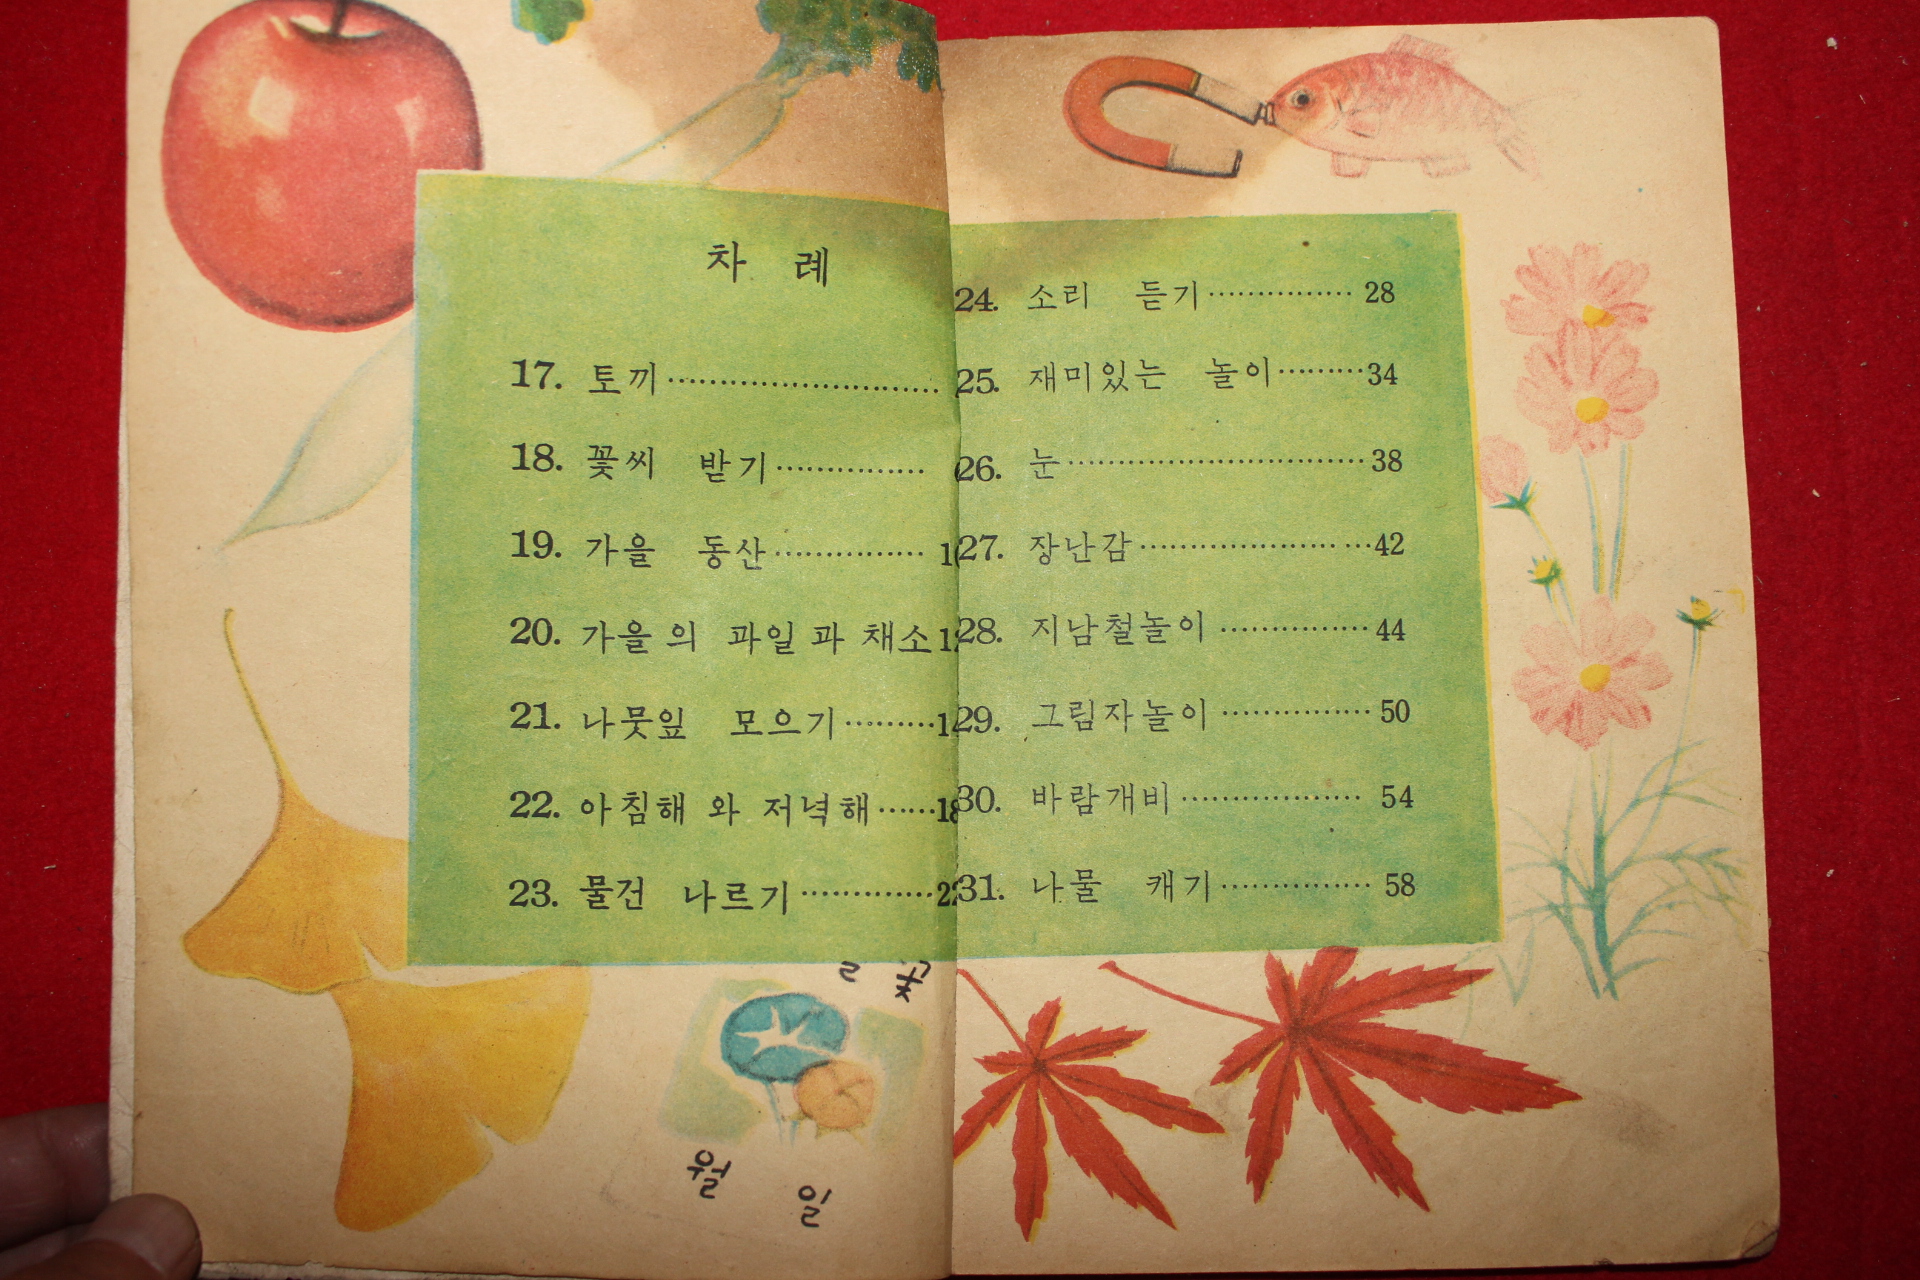 차 례
17. 토끼
18. 꽃씨 받기
19. 가을 동산
20. 가을의 과일과 채소
21. 나뭇잎 모으기
22. 아침해와 저녁해 18
23. 물건 나르기
24. 소리 듣기 28
25. 재미있는 놀이 34
26. 눈 38
27. 장난감 42
28. 지남철놀이 44
29. 그림자놀이 50
30. 바람개비 54
31. 나물 캐기 58
월 일